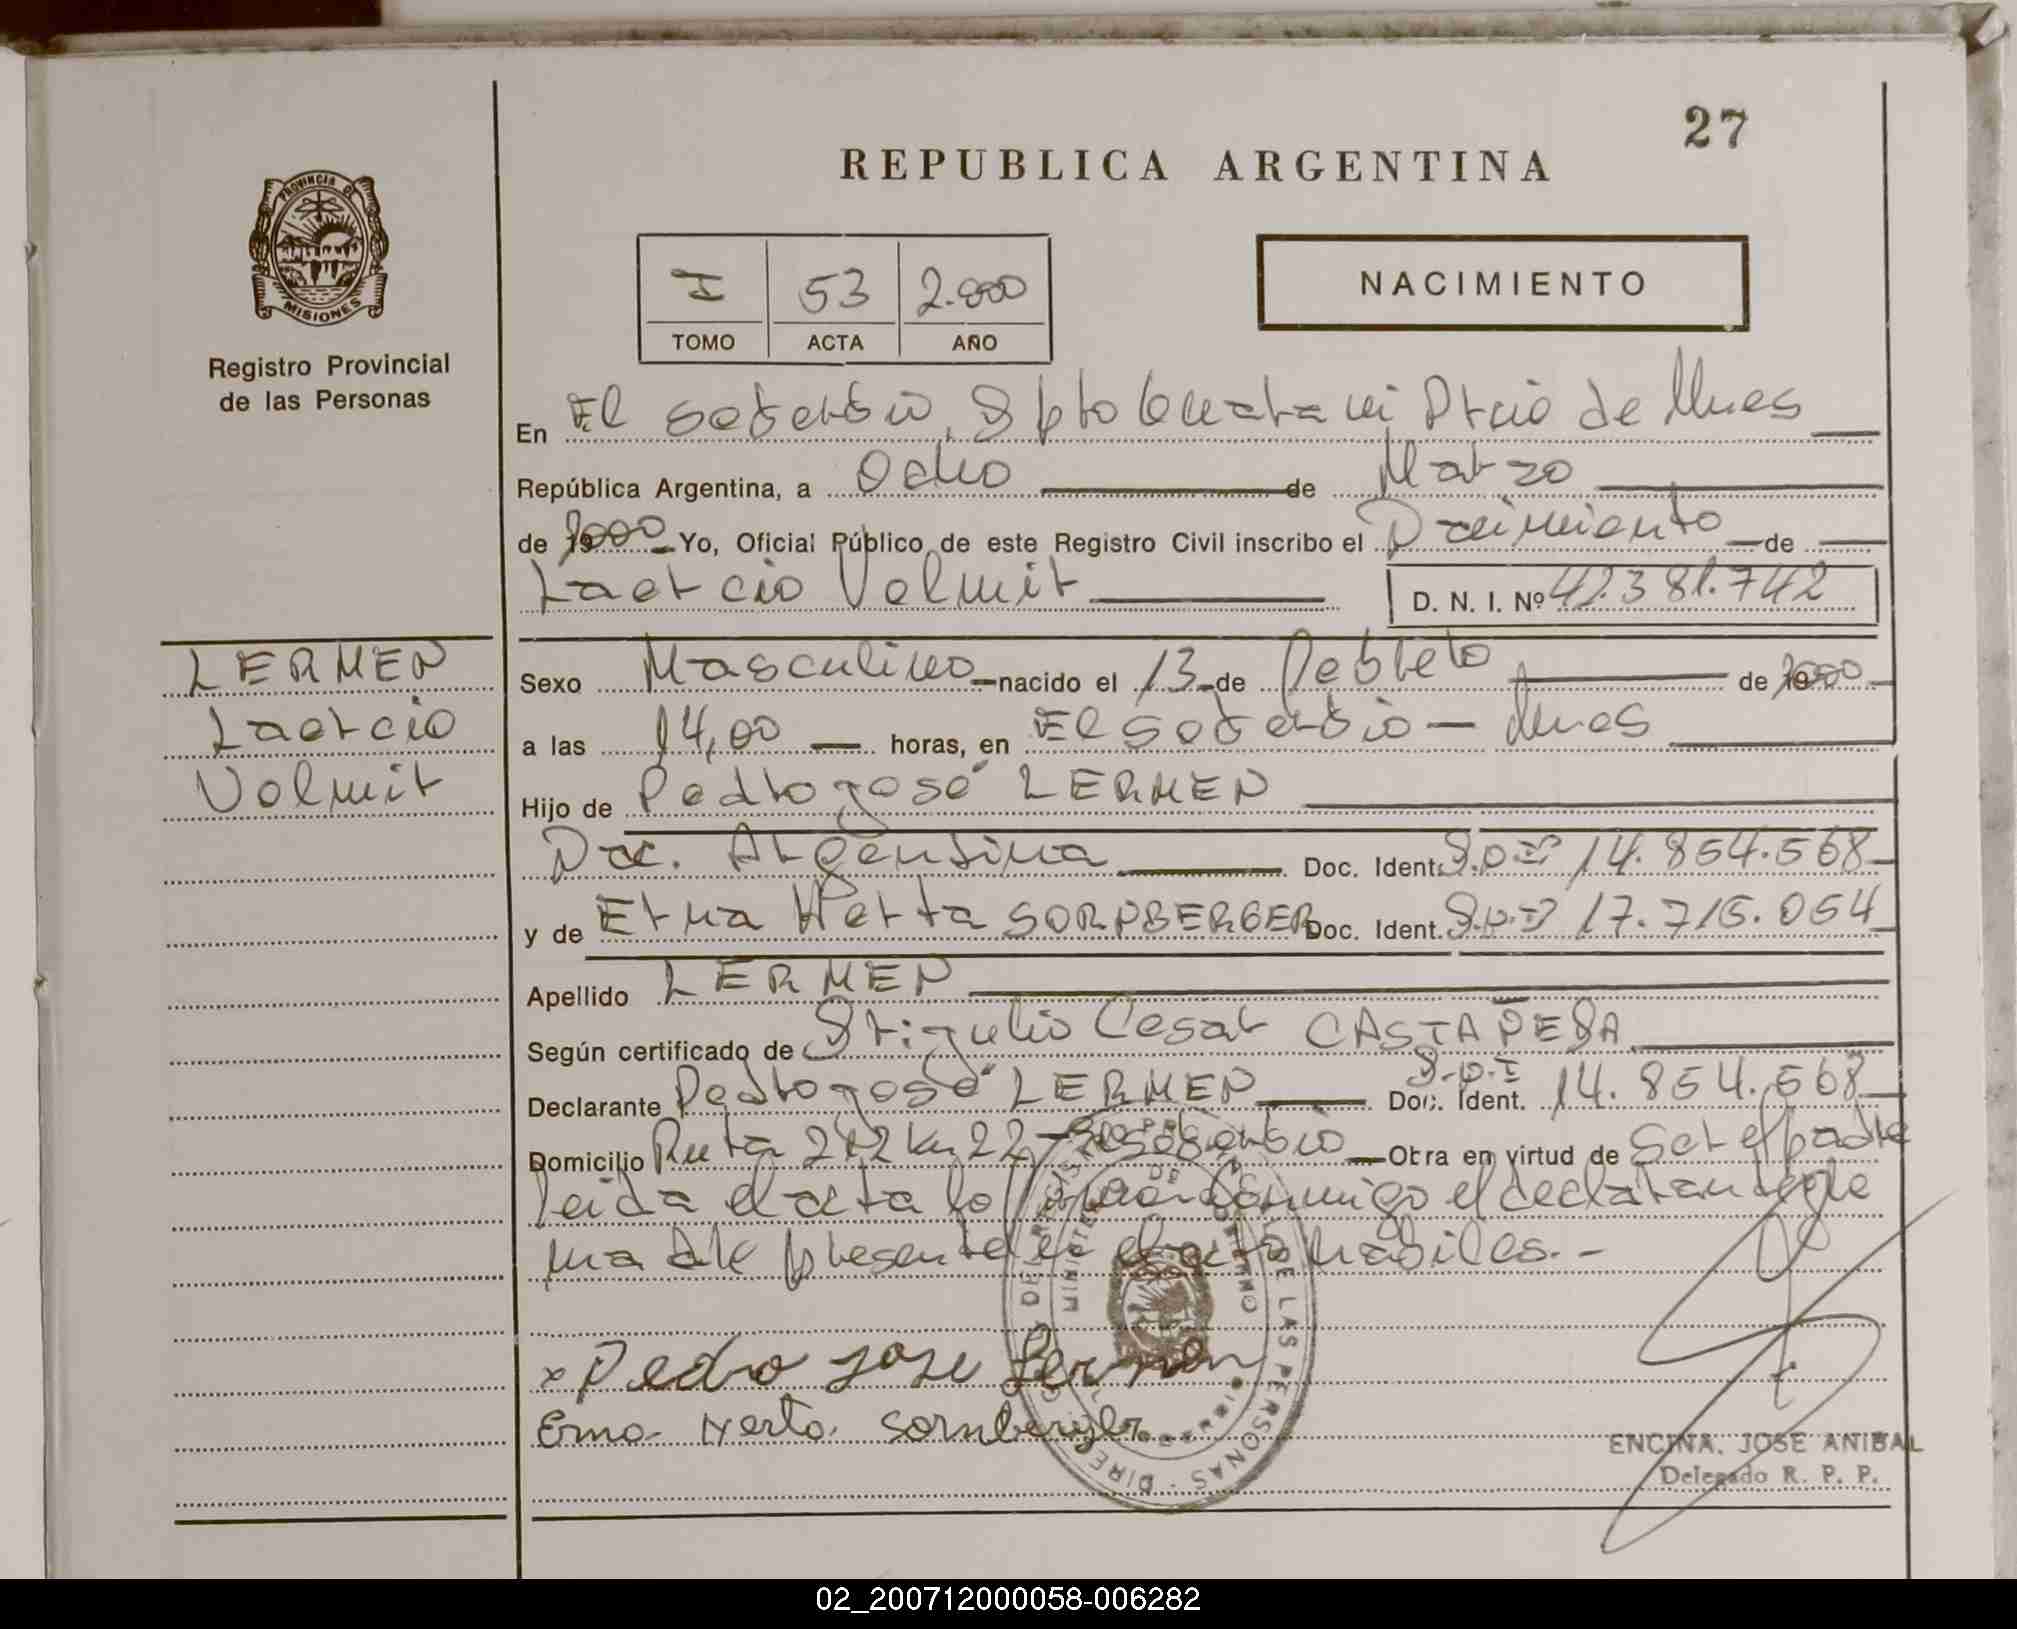 27
REPUBLICA ARGENTINA
PROVINCIA DE
MISIONES
Registro Provincial
de las Personas
I 53 2.000
TOMO ACTA AÑO
NACIMIENTO
En El Soberbio, Dpto Guarani Pcia de Mnes
República Argentina, a Ocho de Marzo
de 2000 Yo, Oficial Público de este Registro Civil inscribo el Nacimiento de
Laercio Volmir D. N. I. Nº 42.381.742
LERMEN
Laercio
Volmir
Sexo Masculino nacido el 13 de Febrero de 2000
a las 14,00 horas, en El Soberbio - Mnes
Hijo de Pedro José LERMEN
Nac. Argentina Doc. Ident. D.N.I 14.854.568
y de Erna Herta SORNBERGER Doc. Ident. D.N.I 17.715.054
Apellido LERMEN
Según certificado de Dr. Julio Cesar CASTAÑEDA
Declarante Pedro José LERMEN Doc. Ident. D.N.I 14.854.568
Domicilio Ruta 212 Km 22 - El Soberbio Obra en virtud de Ser el padre
leida el acta lo firman conmigo el declarante y la
madre presente en el acto habiles.-
x Pedro Jose Lermen
Erna Herta Sornberger
ENCINA, JOSE ANIBAL
Delegado R. P. P.
DE LAS PERSONAS
02_200712000058-006282